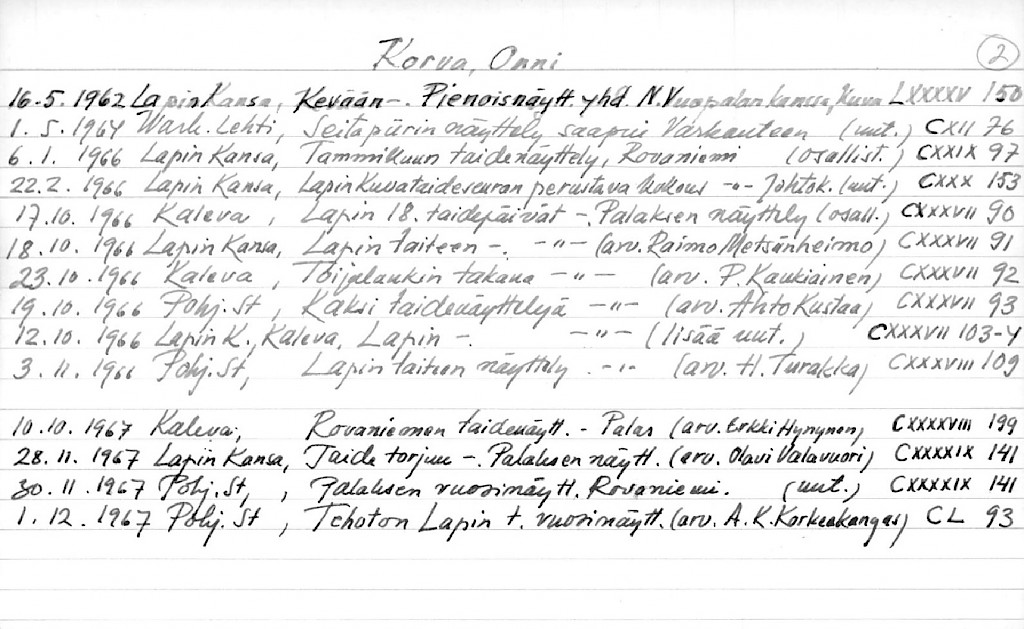 Korva, Onni 2
16.5. 1962 Lapin Kansa, Kevään -. Pienoisnäytt. yhd. N. Vuopalan kanssa, Kuva LXXXXV 150
1. 5. 1964 Wark. Lehti, Seitapiirin näyttely saapui Varkauteen (uut.) CXII 76
6. 1. 1966 Lapin Kansa, Tammikuun taidenäyttely, Rovaniemi (osallist.) CXXIX 97
22.2. 1966 Lapin Kansa, Lapin Kuvataideseuran perustava kokous -"- Johtok. (uut.) CXXX 153
17.10. 1966 Kaleva, Lapin 18. taidepäivät -. Palaksen näyttely (osall.) CXXXVII 90
18.10. 1966 Lapin Kansa, Lapin taiteen -. -"- (arv. Raimo Metsänheimo) CXXXVII 91
23.10. 1966 Kaleva, Toijalankin takana -"- (arv. P. Kaukiainen) CXXXVII 92
19.10. 1966 Pohj. St, Kaksi taidenäyttelyä -"- (arv. Ahto Kustaa) CXXXVII 93
12.10. 1966 Lapin K., Kaleva, Lapin -. -"- (lisää uut.) CXXXVII 103-4
3. 11. 1966 Pohj. St, Lapin taiteen näyttely. -"- (arv. H. Turakka) CXXXVIII 109
10.10. 1967 Kaleva, Rovaniemen taidenäytt. - Palas (arv. Erkki Hynynen) CXXXXVIII 199
28.11. 1967 Lapin Kansa, Taide torjuu -. Palaksen näytt. (arv. Olavi Valavuori) CXXXXIX 141
30.11.1967 Pohj. St, , Palaksen vuosinäytt. Rovaniemi. (uut.) CXXXXIX 141
1.12.1967 Pohj. St , Tehoton Lapin t. vuosinäytt. (arv. A. K. Korkeakangas) CL 93